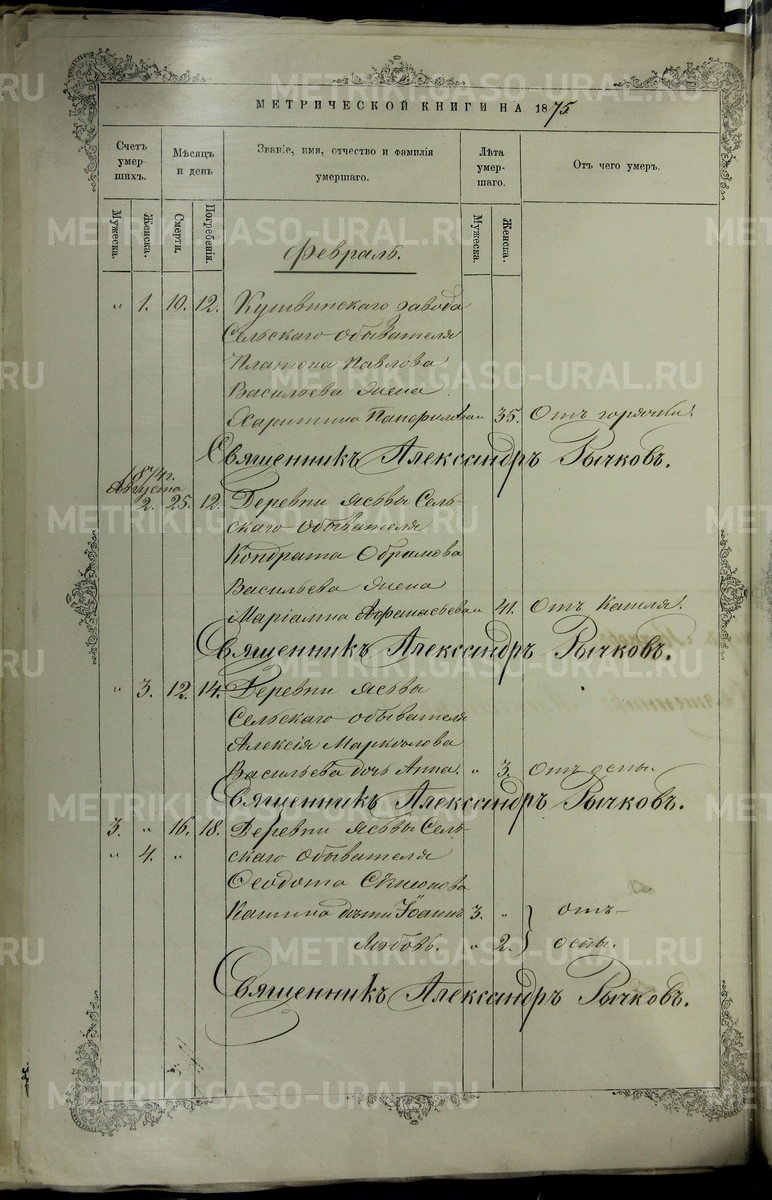 МЕТРИЧЕСКОЙ КНИГИ НА 1875
Счетъ умер-шихъ.
Мѣсяцъ и день
Званіе, имя, отчество и фамилія умершаго.
Лѣта умер-шаго.
Отъ чего умеръ.
Мужеска.
Женска.
Смерти.
Погребенія.
Мужеска.
Женска.
Февраль.
„ 1. 10. 12. Кушвинскаго завода
Сельскаго обывателя
Платона Павлова
Васильева жена
Харитина Панфилова „ 35. Отъ горячки.
Священникъ Александръ Рычковъ.
1874 г.
Августа
2. 25. 12. Деревни Ясьвы Сель-
скаго обывателя
Кондрата Обрамова
Васильева жена
Маріамна Афанасьева „ 41. Отъ кашля.
Священникъ Александръ Рычковъ.
„ 3. 12. 14. Деревни Ясьвы
Сельскаго обывателя
Алексія Маркелова
Васильева дочь Анна. „ 3. Отъ оспы.
Священникъ Александръ Рычковъ.
3. „ 16. 18. Деревни Ясьвы Сель-
„ 4. „ скаго обывателя
Ѳеодота
дѣти Іоаннъ 3. „ отъ
Любовь. „ 2. оспы.
Священникъ Александръ Рычковъ.
METRIKI.GASO-URAL.RU